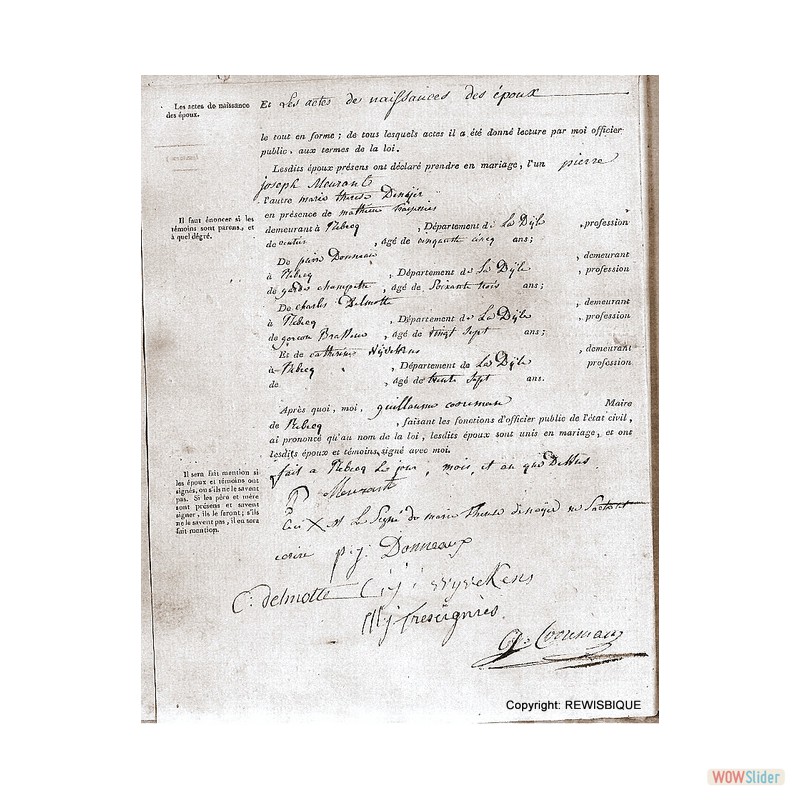 Les actes de naissance
des époux.
Et Les actes de naissances des époux
le tout en forme ; de tous lesquels actes il a été donné lecture par moi officier
public, aux termes de la loi.
Lesdits époux présens ont déclaré prendre en mariage, l'un pierre
joseph Meurant
l'autre marie therese
en présence de mathieu
Il faut énoncer si les
témoins sont parens, et
à quel dégré.
demeurant à Rebecq , Département de La Dÿle , profession
de , agé de cinquante cinq ans ;
De pierre Donneau , demeurant
à Rebecq , Département de La Dÿle , profession
de garde champette , agé de Soixante trois ans ;
De charles Delmotte , demeurant
à Rebecq , Département de La Dÿle , profession
de garcon Brasseur , agé de vingt sept ans ;
Et de , demeurant
à Rebecq , Département de La Dÿle profession
de , agé de trente sept ans.
Après quoi, moi, guillaume cooreman Maire
de Rebecq , faisant les fonctions d'officier public de l'état civil,
ai prononcé qu'au nom de la loi, lesdits époux sont unis en mariage, et ont
lesdits époux et témoins, signé avec moi.
Il sera fait mention si
les époux et témoins ont
signés, ou s'ils ne le savent
pas. Si les père et mère
sont présens et savent
signer, ils le feront ; s'ils
ne le savent pas, il en sera
fait mention.
fait a Rebecq Le jour, mois, et an que Dessus
Ceci X est Le Signé de marie therese
ecrire p. j. Donneaux
C: delmotte
G. Cooreman
Copyright: REWISBIQUE
WOWSlider